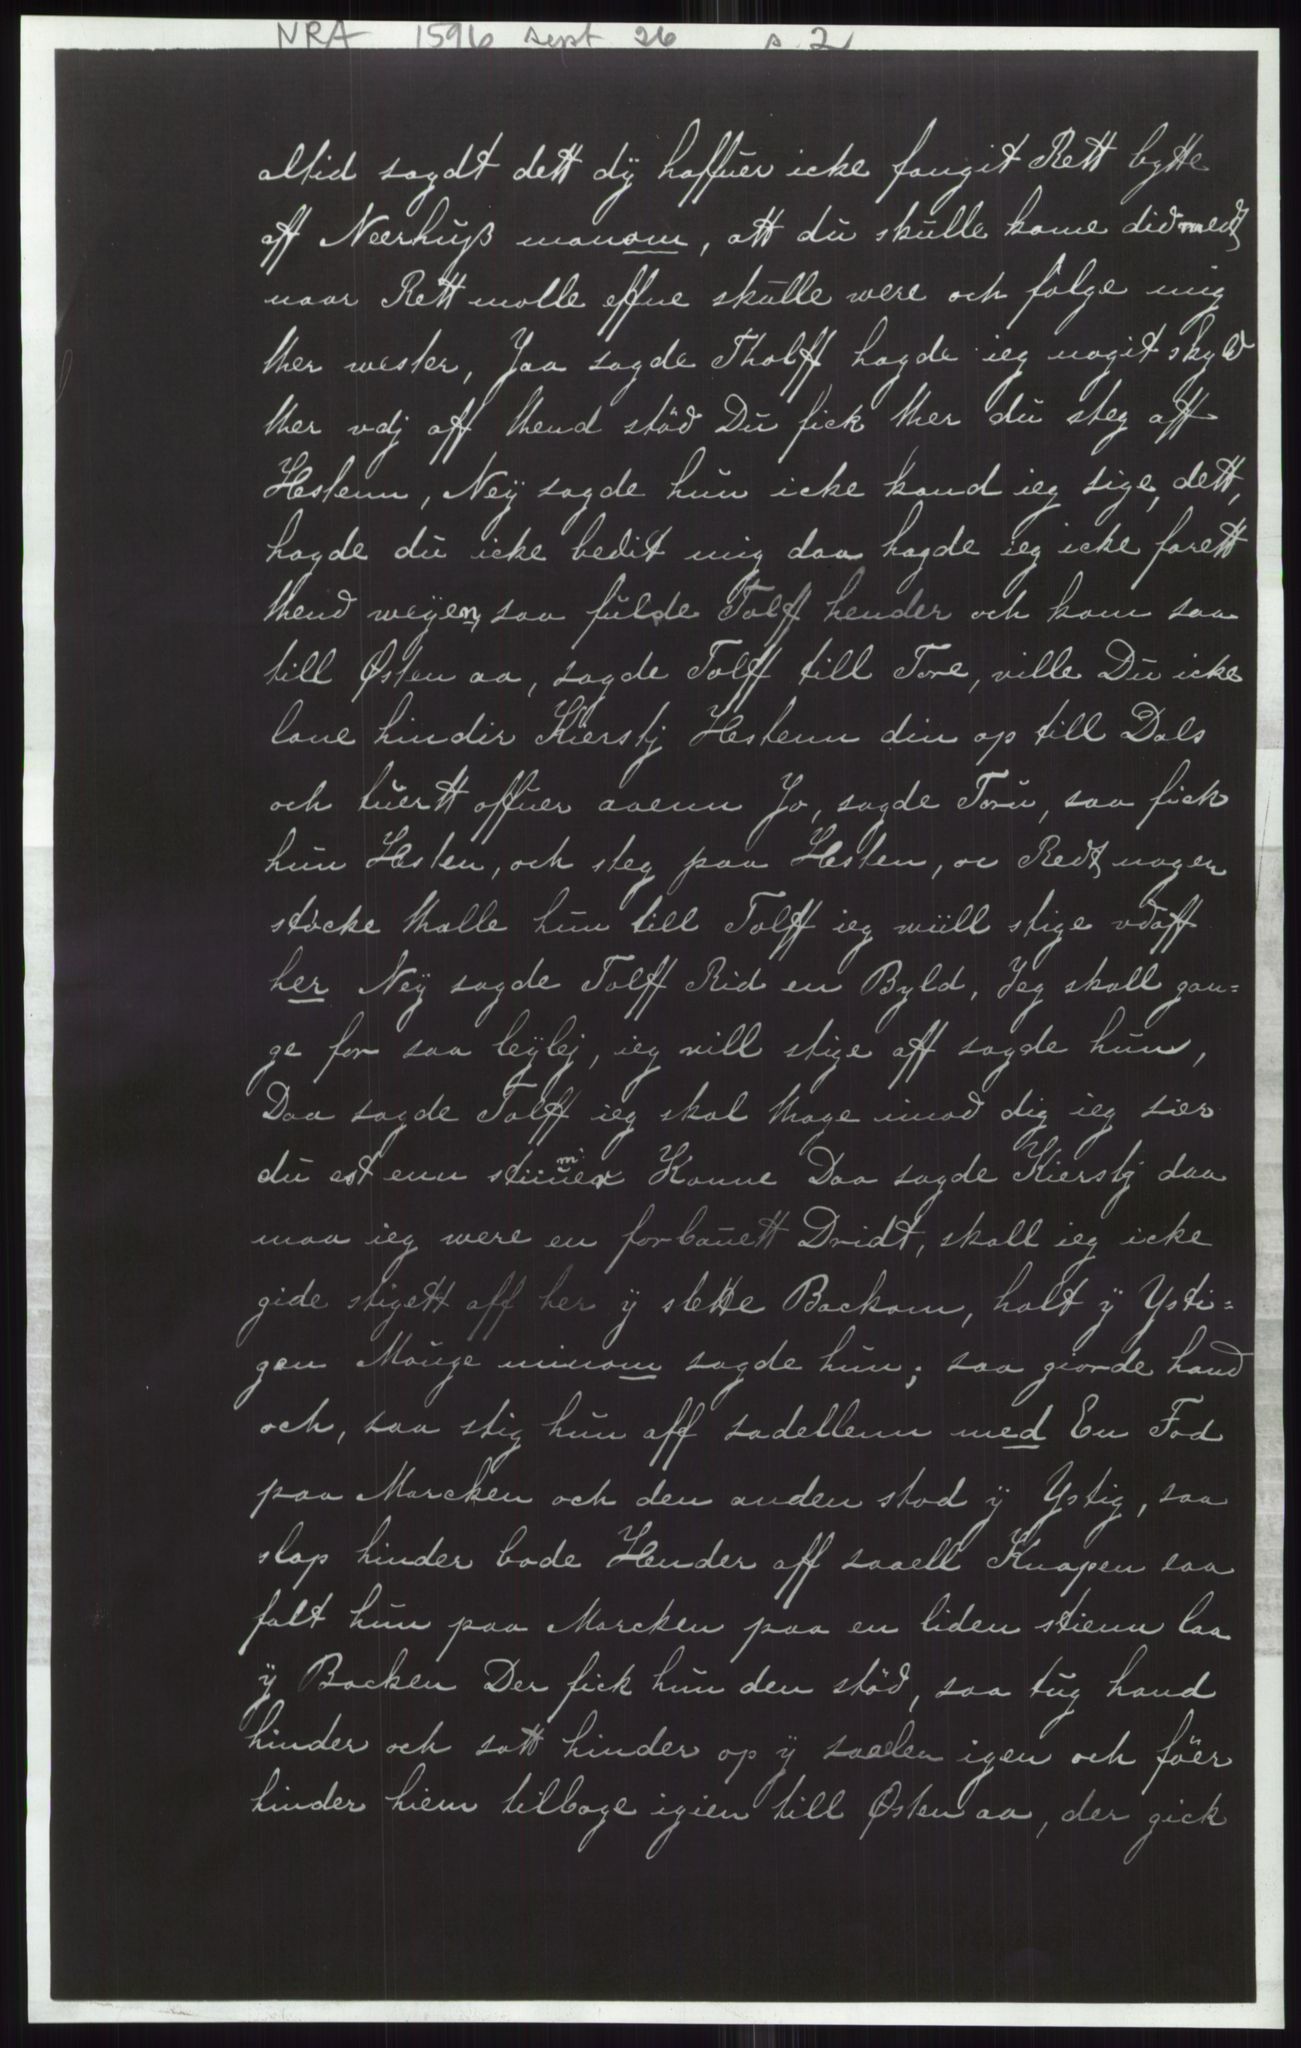 NRA 1596 Sept 26 s. 2
altid sagdt dett dÿ haffuer icke fangit Rett bytte
aff Neerhuß manom, att du skulle kome did medt
naar Rett molle effne skulle were och følge mig
ther wester, Jaa sagde Tholff hagde ieg nogit skyld
ther vdj aff thend stöd Du fick ther du steg aff
Hestenn, Neÿ sagde hun icke kand ieg sige, dett,
hagde du icke bedit mig daa hagde ieg icke farett
thend weÿen, saa fulde Tolff hender och kom saa
till Østen aa, sagde Tolff till Tore, ville Du icke
lone hindir Kierstj Hestenn din op till Dals
och tuertt offuer aaenn Jo, sagde Toru, saa fick
hun Hesten, och steg paa Hesten, oc Redt nogen
støcke thalle hun till Tolff ieg wiill stige vdaff
her Neÿ sagde Tolff Rid en Byld, Jeg skall gan=
ge for saa leÿlej, ieg vill stige aff sagde hun,
Daa sagde Tolff ieg skal thage imod dig ieg sier
du est enn Konne Daa sagde Kierstj daa
maa ieg were en forbauett Dridt, skall ieg icke
gide stigett aff her ÿ slette Backom, halt ÿ Ysti=
gen Mauge minom sagde hun; saa giorde hand
och, saa stig hun aff sadellenn med En Fod
paa Marcken och den anden stod ÿ Ystig, saa
slap hinder bode Hender aff saaell Knapen saa
falt hun paa Marcken paa en liden stienn laa
ÿ Backen Der fick hun den stöd, saa tug hand
hinder och satt hinder op ÿ saalen igen och föer
hinder hiem tilbage igien till Østen aa, der gick